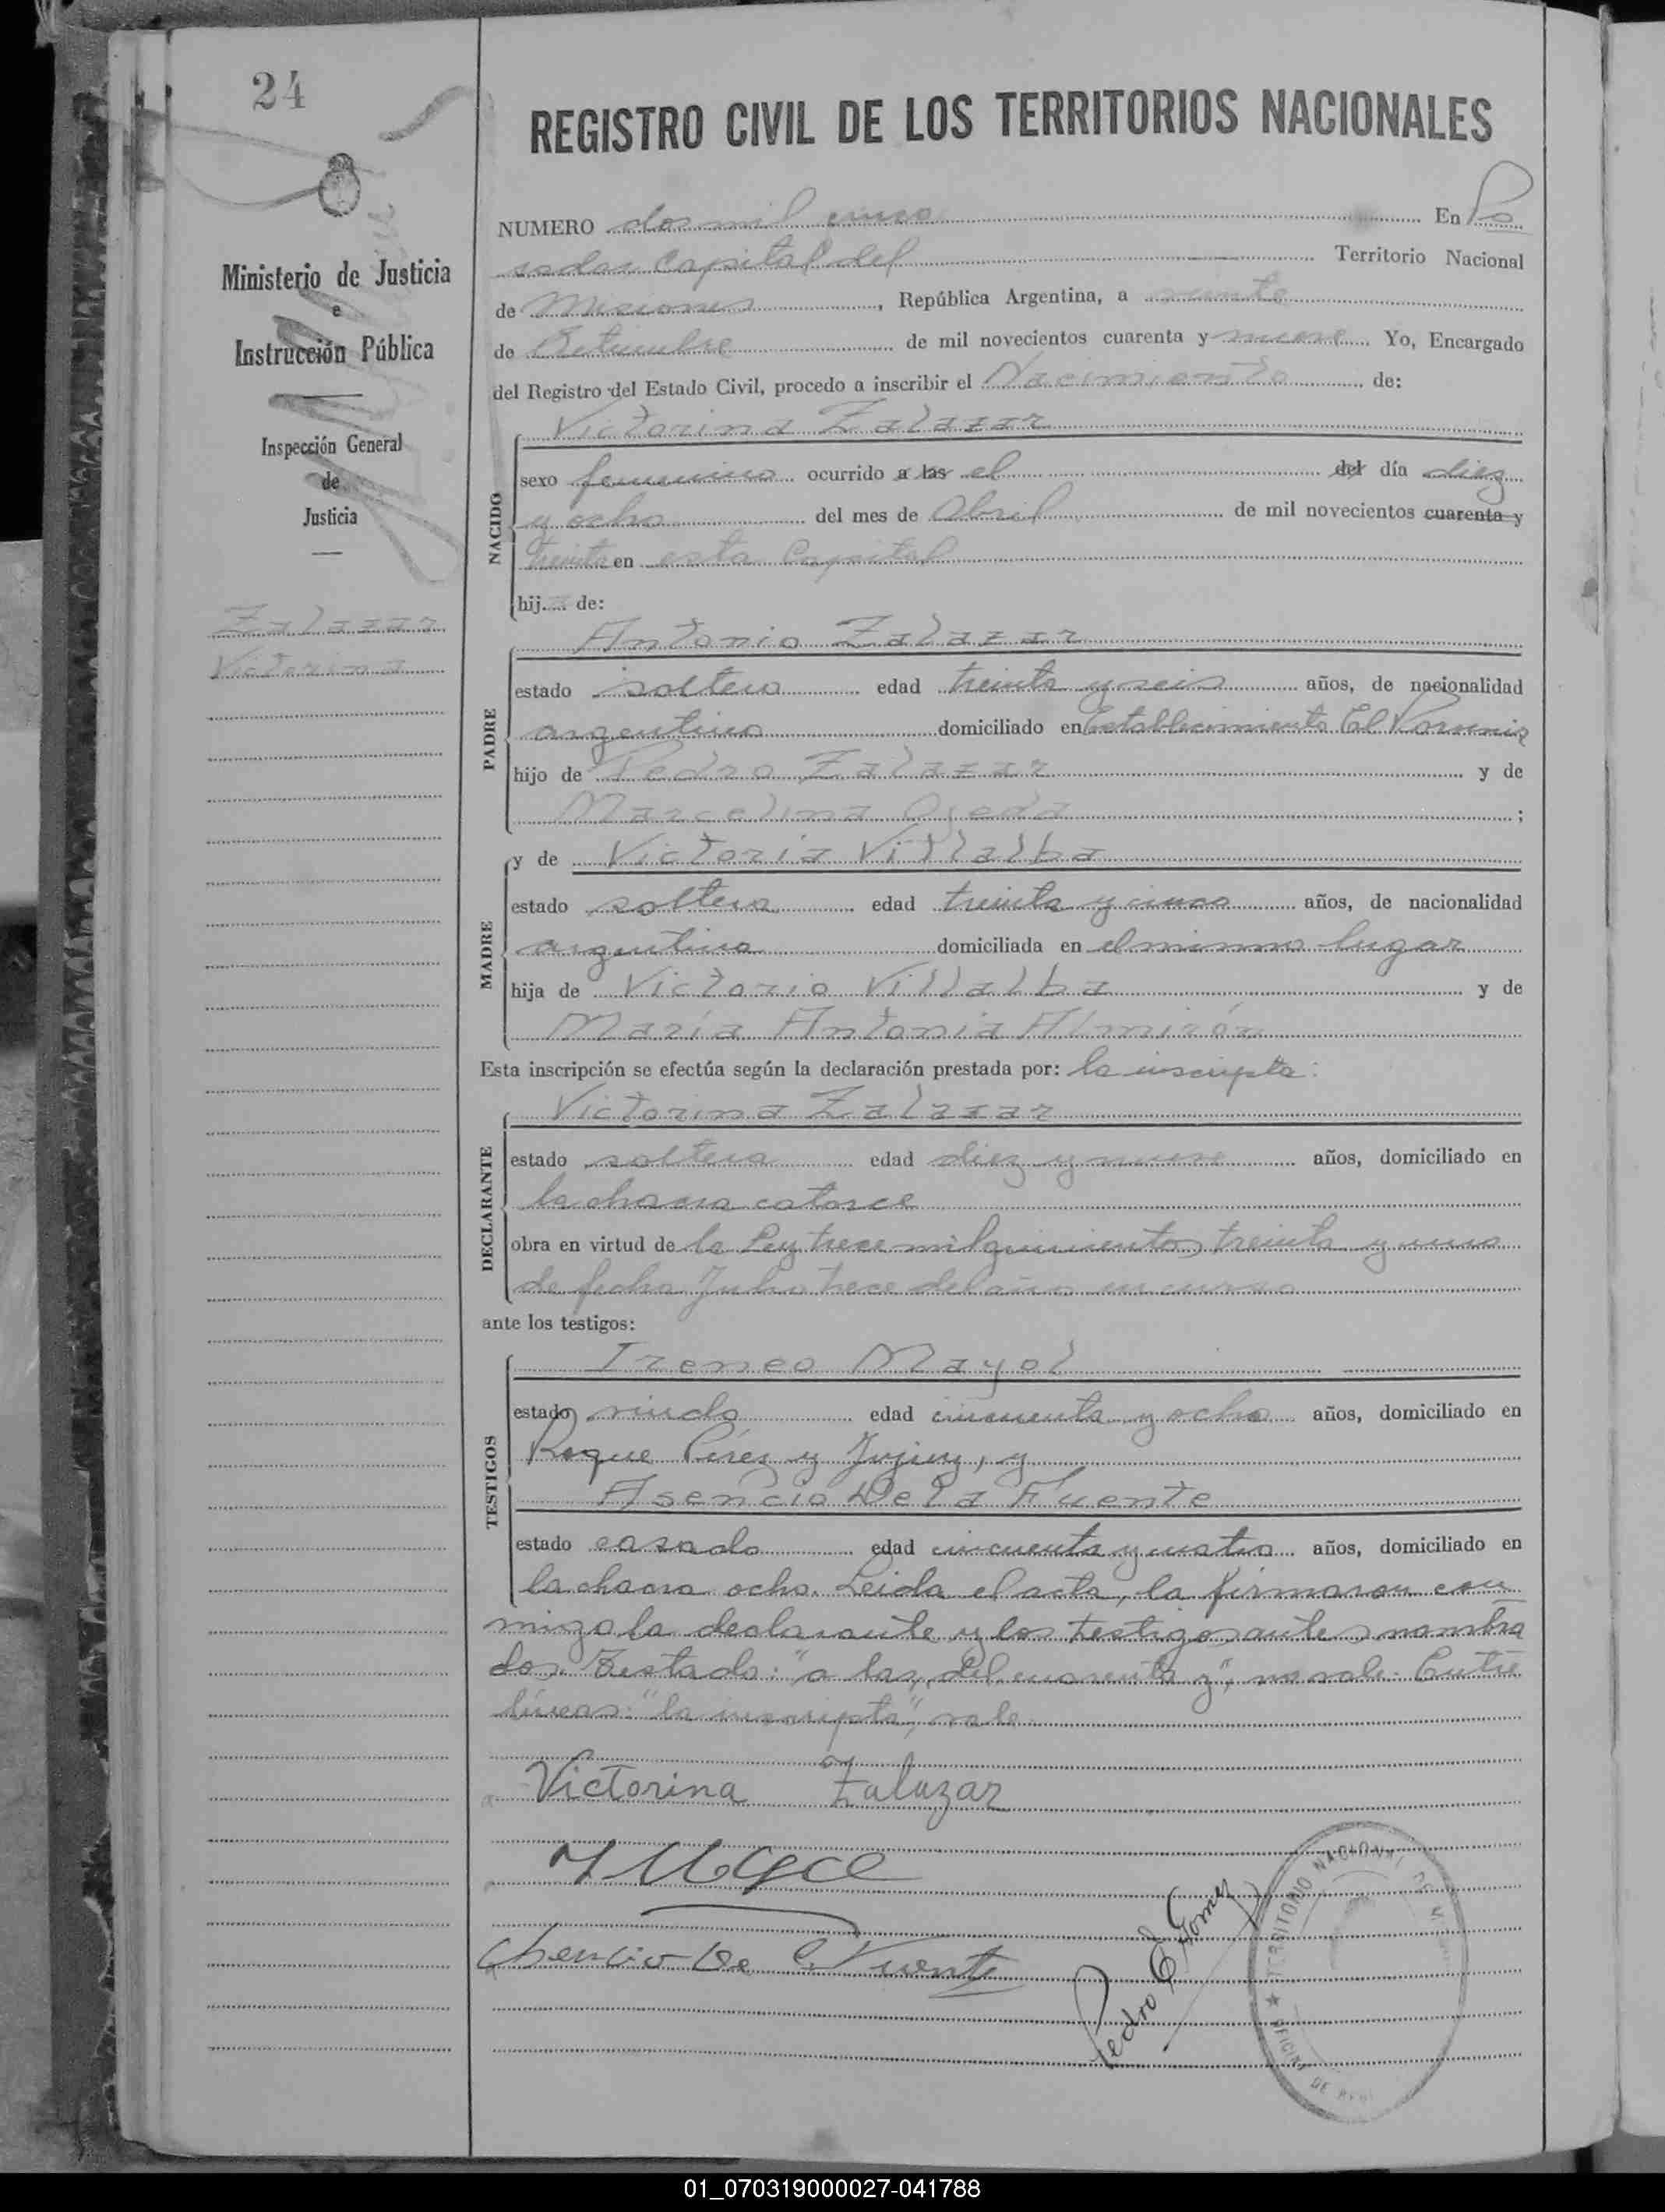 24
REGISTRO CIVIL DE LOS TERRITORIOS NACIONALES
Ministerio de Justicia
e
Instrucción Pública
Inspección General
de
Justicia
Zalazar
Victorina
NUMERO dos mil cinco En Po
sadas Capital del Territorio Nacional
de Misiones, República Argentina, a veinte
de Setiembre de mil novecientos cuarenta y nueve Yo, Encargado
del Registro del Estado Civil, procedo a inscribir el Nacimiento de:
NACIDO
Victorina Zalazar
sexo femenino ocurrido a las el del día diez
y ocho del mes de Abril de mil novecientos cuarenta y
treinta en esta Capital
hija de:
PADRE
Antonio Zalazar
estado soltero edad treinta y seis años, de nacionalidad
argentino domiciliado en Establecimiento El Porvenir
hijo de Pedro Zalazar y de
Marcelina Ojeda ;
MADRE
y de Victoria Villalba
estado soltera edad treinta y cinco años, de nacionalidad
argentina domiciliada en el mismo lugar
hija de Victorio Villalba y de
María Antonia Almirón
Esta inscripción se efectúa según la declaración prestada por: la inscripta:
DECLARANTE
Victorina Zalazar
estado soltera edad diez y nueve años, domiciliado en
la chacra catorce
obra en virtud de la Ley trece mil quinientos treinta y uno
de fecha Julio trece del año en curso
ante los testigos:
TESTIGOS
Ireneo Mayol
estado viudo edad cincuenta y ocho años, domiciliado en
Roque Pérez y Jujuy, y
Asencio De la Fuente
estado casado edad cincuenta y cuatro años, domiciliado en
la chacra ocho. Leida el acta, la firmaron con
migo la declarante y los testigos antes nombra
dos. Testado: "a las, del cuarenta y", no vale. Entre
líneas: "la inscripta", vale.
Victorina Zalazar
Asencio De la Fuente
Pedro E Gomez
TERRITORIO NACIONAL DE M
★ OFICINA DE
01_070319000027-041788